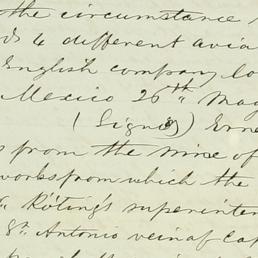 the circumstance
to different avia
English company lo
Mexico 26th May
(Signed) Erne
from the mine of
works from which the
Röting's superinten
Sn. Antonio vein of Cap